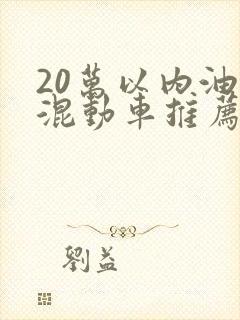 20萬以內油
混動車推薦
劉益